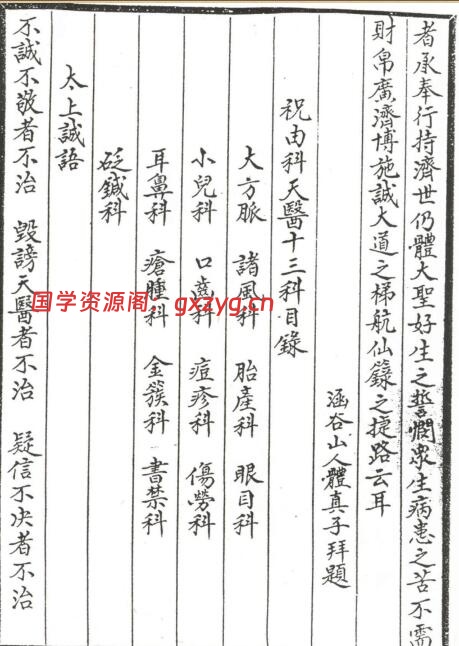 者承奉行持濟世仍體大聖好生之誓憫衆生病患之苦不需
財帛廣濟博施誠大道之梯航仙籙之捷路云耳
涵谷山人體真子拜題
祝由科天醫十三科目錄
大方脈 諸風科 胎產科 眼目科
小兒科 口齒科 痘疹科 傷勞科
耳鼻科 瘡腫科 金簇科 書禁科
砭鍼科
太上誠語
不誠不敬者不治 毀謗天醫者不治 疑信不决者不治
国学资源阁：gxzyg.cn